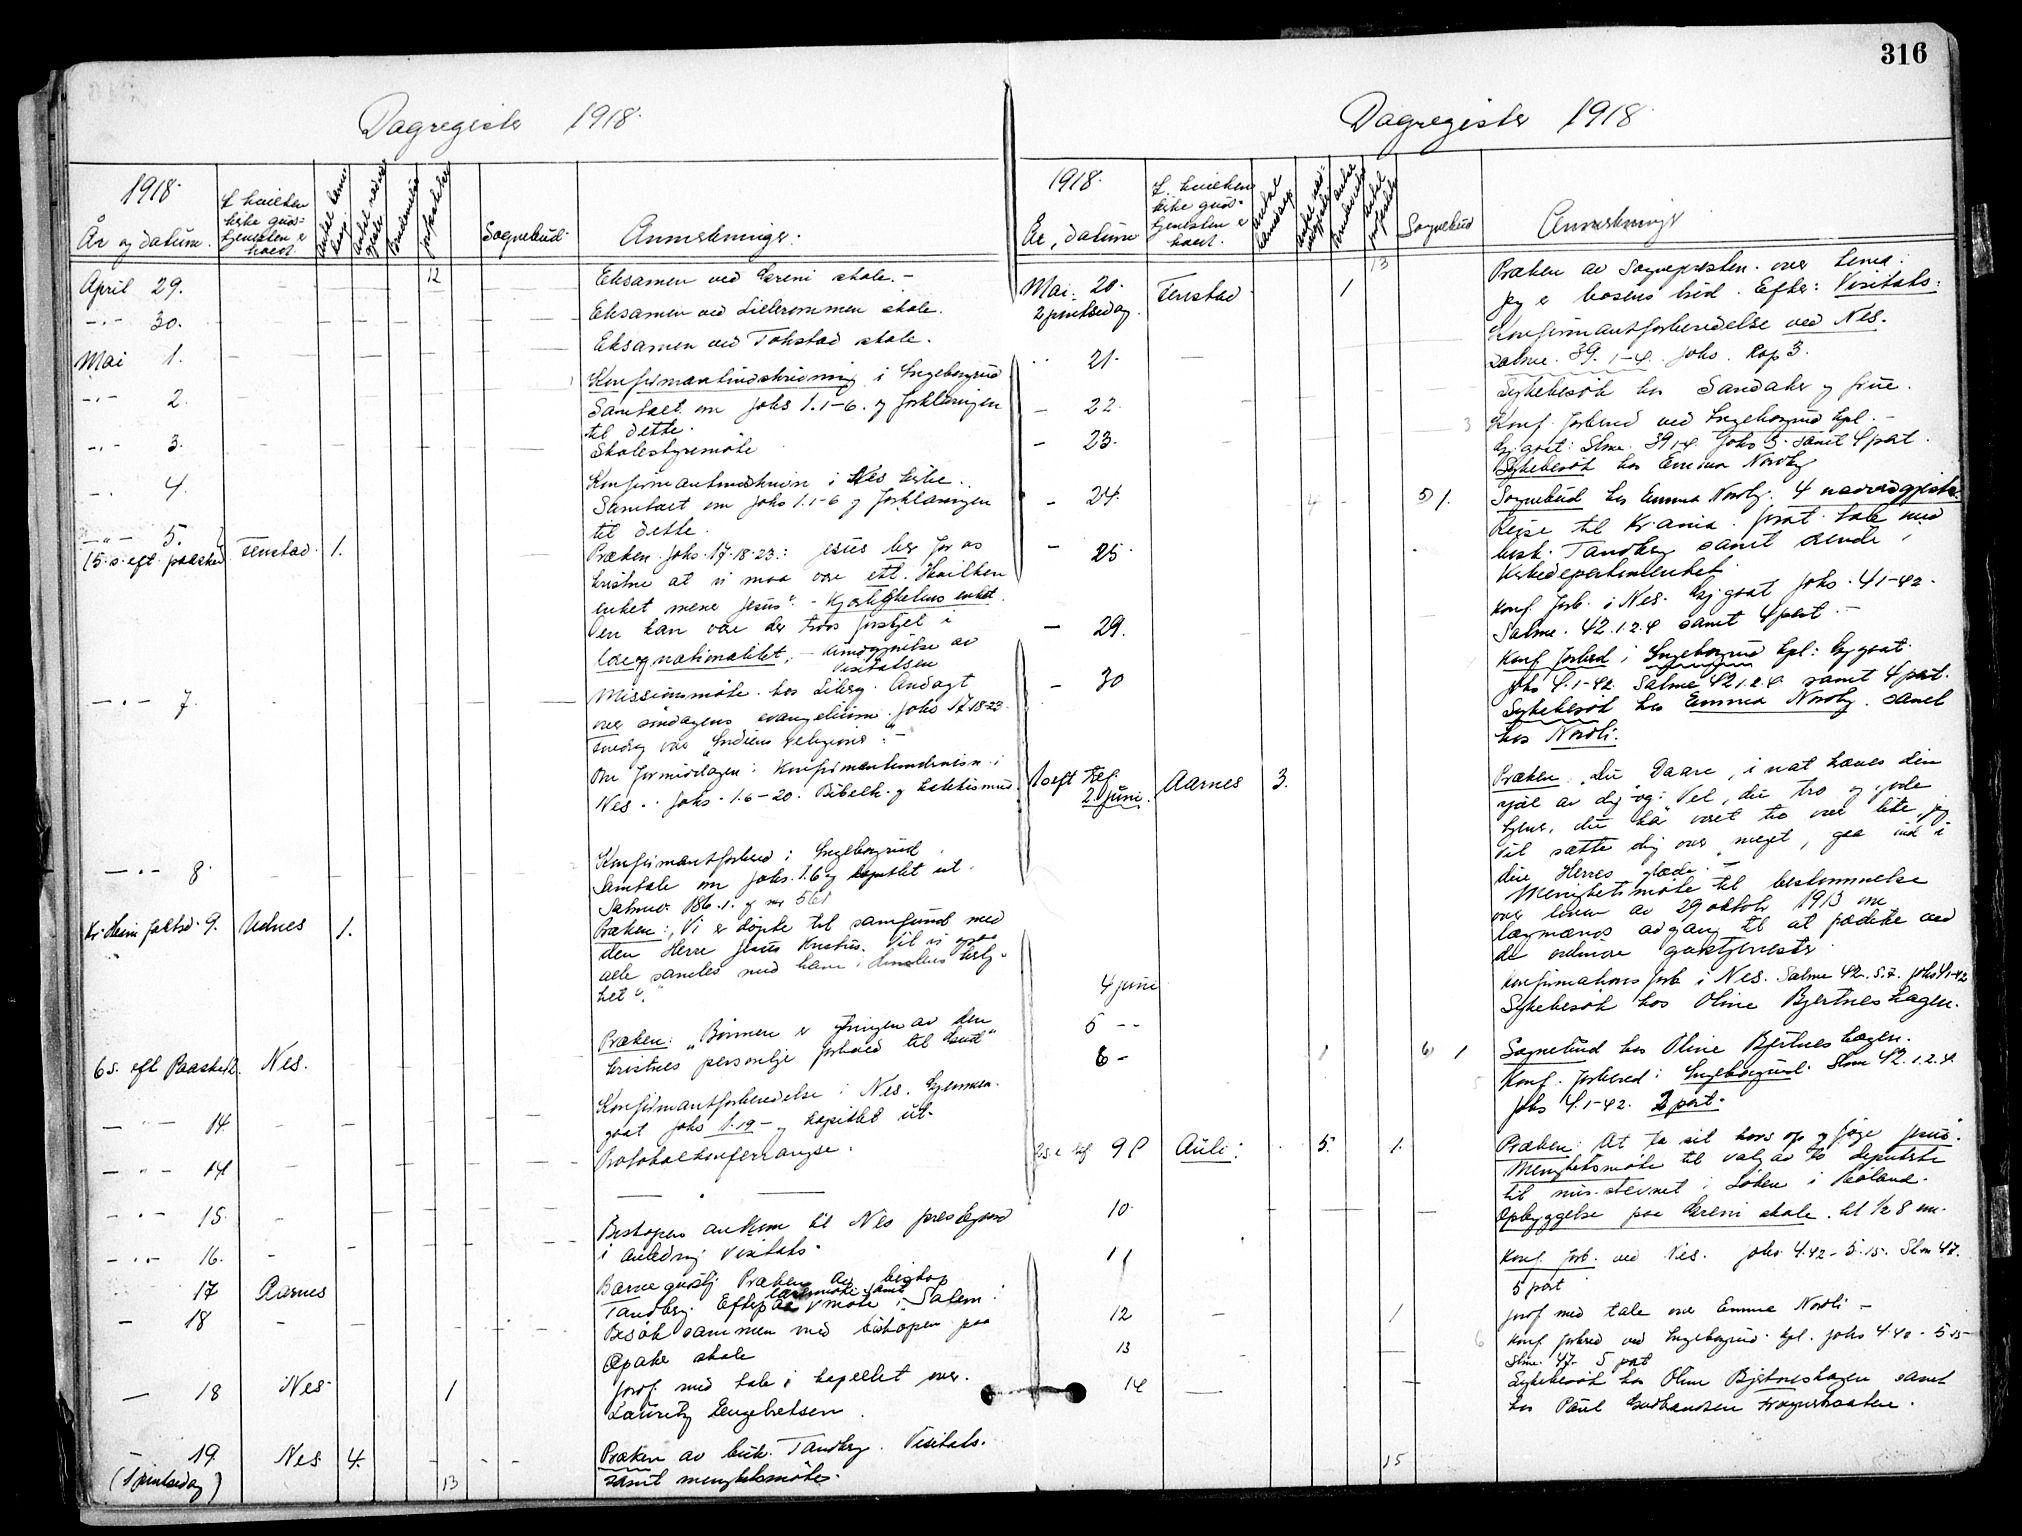 316
Dagregister 1918.
1918.
År og datum.
I hvilken
kirke guds=
tjenesten er
holdt.
Sognebud.
Anmerkninger.
April 29. 12 Eksamen ved Greni skole.-
-"- 30. Eksamen ved skole.
Mai 1. Eksamen ved Tokstad skole.
-"- 2. Konfirmantindskrivning i Ingeborgrud
Samtale om Johs 1.1-6. og forklaringen
til dette.
-"- 3. Skolestyremöte
-"- 4. Konfirmantindskrivn i Nes kirke.
Samtale om Johs 1.1-6 og forklaringen
til dette.
-"- 5.
(5.s. eft. paaske) Fenstad. 1. Præken. Johs. 17.18-23.: Jesus ber for os
kristne at vi maa være ett. Hvilken
enhet mener Jesus". - Kjærlighetens enhet.
Den kan være der trods forskjel i
lære og nationalitet. - av
Visitatsen
-"- 7. Missionsmöte hos Liberg. Andagt
over söndagens evangelium Johs 17.18-23.
foredrag over "Indiens religioner".-
Om formiddagen: Konfirmantundervisn. i
Nes. Johs. 1.6-20. Bibelh. og katekismus.
-"- 8. Konfirmantforbered i Ingeborgrud.
Samtale om Johs. 1.6 og kapitlet ut.
Salmev. 186.1. og nr 561
Kr. Himmelfartsd. 9. Udnes 1. Præken: "Vi er döpte til samfund med
den Herre Jesus Kristus. Vil vi ogsaa
alle samles med ham i Himlens herlig-
het".
6 s. eft Paaske Nes. Præken: "Bönnen er ytringen av den
kristnes personlige forhold til Gud"
-"- 14 Konfirmantforberedelse i Nes. Gjennem-
gaat Johs 1.19- og kapitlet ut.
-"- 14 Protokolkonferranse.
-"- 15.
-"- 16. Biskopen ankom til Nes prestegaard
i anledning visitats.
17 Aarnes Barnegudstj. Præken av biskop
Tandberg. Efterpaa möte i Salem.
- 18 Besök sammen med biskopen paa
Opaker skole
- 18 Nes. 1 Jordf. med tale i kapellet over
Lauritz Engebretsen.
- 19. Nes 4. Præken av bisk. Tandberg. Visitats.
(1 pintsedag) 13 samt menighetsmöte.
Dagregister 1918.
1918.
År, datum
I hvilken
kirke guds=
tjenesten er
holdt.
Sognebud
Anmerkninger
13
Mai. 20. Fenstad 1 Præken av Sognepresten over tema:
2 pintsedag. Jeg er livsens bröd. Efter: Visitats.
.. 21. Konfirmantforberedelse ved Nes.
Salme. 39. 1-4. Johs. Kap 3.
- 22. Sykebesök hos Sandaker og frue.
- 23. 3 Konf. forbered ved Ingeborgrud kpl.-
Gj.gaat: Slme. 39 1-4 Johs 3. samt 4 part.
Sykebesök hos Emma Nordby
- 24. 4 5) 1. Sognebud hos Emma Nordby. 4 nadverdgjester.
- 25. Reise til Kr.ania. Privat tale med
bisk. Tandberg samt ærende i
Kirkedepartementet.
- 29. Konf. forb. i Nes. Gj.gaat Johs. 4 1-42.
Salme. 42. 1.2.4 samt 4 part.-
- 30 Konf. forbred i Ingeborgrud kpl: Gj.gaat.
Johs 4.1-42 Salme 42 1.2.4. samt 4 part.
Sykebesök hos Emma Nordby. samt
hos Nordli.
1 s. eft tref.
2. juni. Aarnes 3. Præken: "Du Daare, i nat kræves din
sjæl av dig" og: "Vel, du tro og gode
tjener, du har været tro over lite, jeg
vil sætte dig over meget, gaa ind i
din Herres glæde".-
Menighetsmöte til bestemmelse
over loven av 29 oktob 1913 om
lægmænds adgang til at prædike ved
de ordinære gudstjenester
4 juni Konfirmationsforb. i Nes. Salme 42.5.7. Johs 4.1-42
5 -- Sykebesök hos Oline Bjertneshagen.
6 - 1 6) 1 Sognebud hos Oline Bjertneshagen.
5 Konf. forbered: Ingeborgrud. Slm 42. 1.2.4.
Johs 4.1-42. 3 part.
2 s. e. tref 9 Auli: 5. 1. Præken: At ta sit kors op og fölge Jesus.
Menighetsmöte til valg av to deputerte
til mis.stevnet i Löken i Höland.
10. Opbyggelse paa Greni skole. kl 1/2 8 em.
11 Konf. forb. ved Nes. Johs 4.42-5.15. Slm 47.
5 part
12 1 Jordf med tale over Emma Nordli -
13 6 Konf. forbred ved Ingeborgrud kpl. Johs 4.40 - 5.15-
Slme. 47. 5 part
14 Sykebesök hos Oline Bjertneshagen samt
hos Paul Gulbrandsen
15